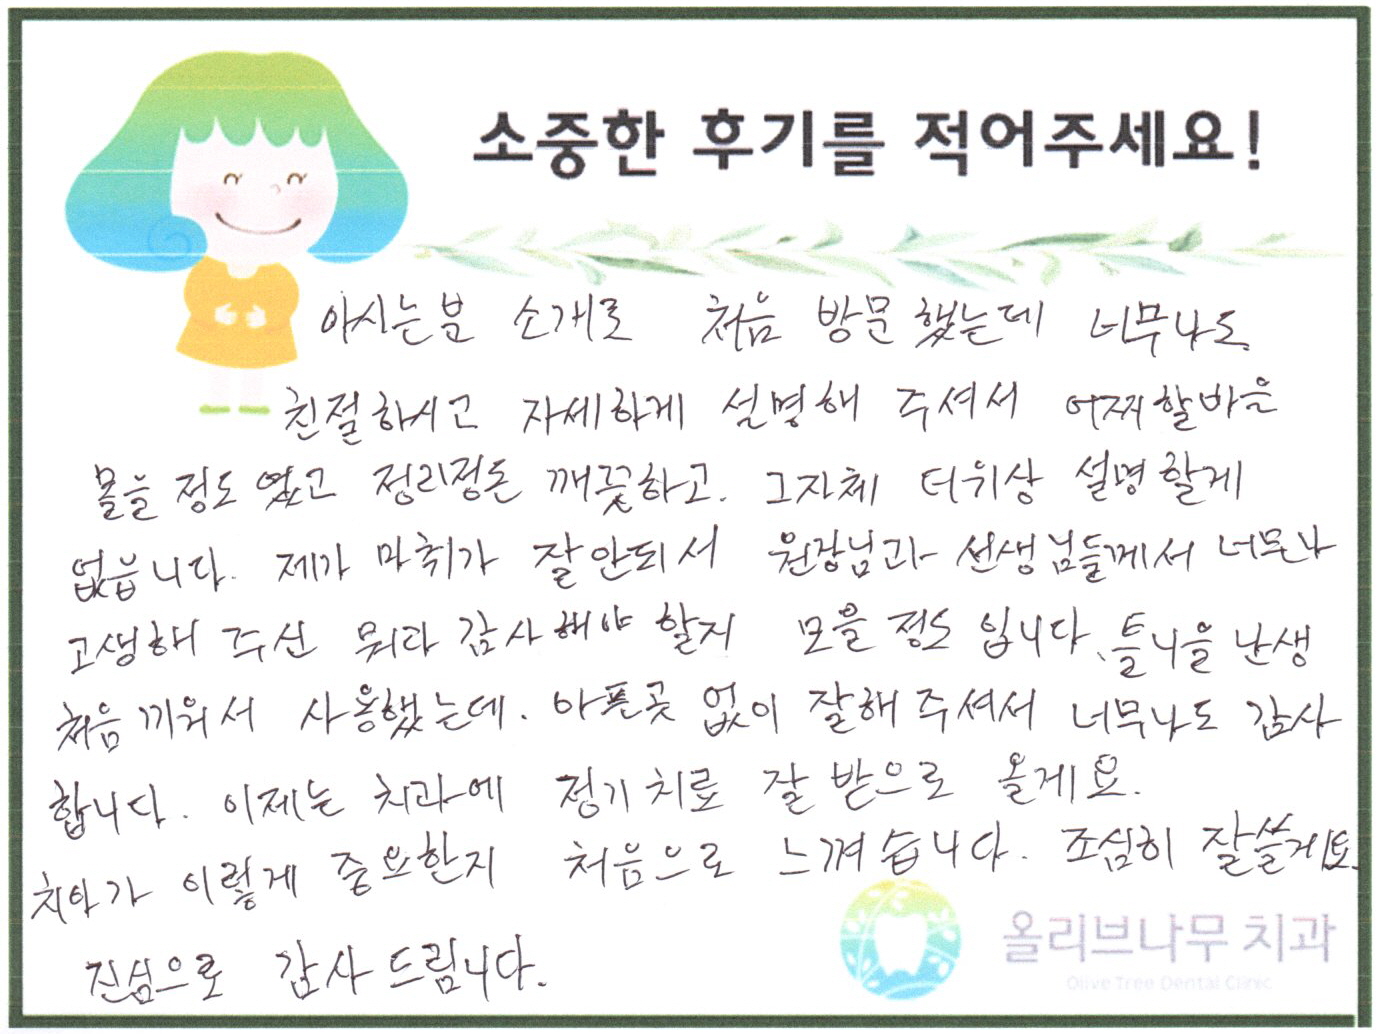 소중한 후기를 적어주세요!
아시는분 소개로 처음 방문했는데 너무나도
친절하시고 자세하게 설명해 주셔서 어찌할바을
몰을 정도였고 정리정돈 깨끗하고. 그자체 더위상 설명할게
없읍니다. 제가 마취가 잘안되서 원장님과 선생님들께서 너무나
고생해 주신 뭐라 감사해야 할지 모을 정도 입니다. 틀니을 난생
처음 끼워서 사용했는데. 아픈곳 없이 잘해주셔서 너무나도 감사
합니다. 이제는 치과에 정기치료 잘 받으로 올게요.
치아가 이렇게 중요한지 처음으로 느껴습니다. 조심히 잘쓸게요.
진심으로 감사드립니다.
올리브나무 치과
Olive Tree Dental Clinic